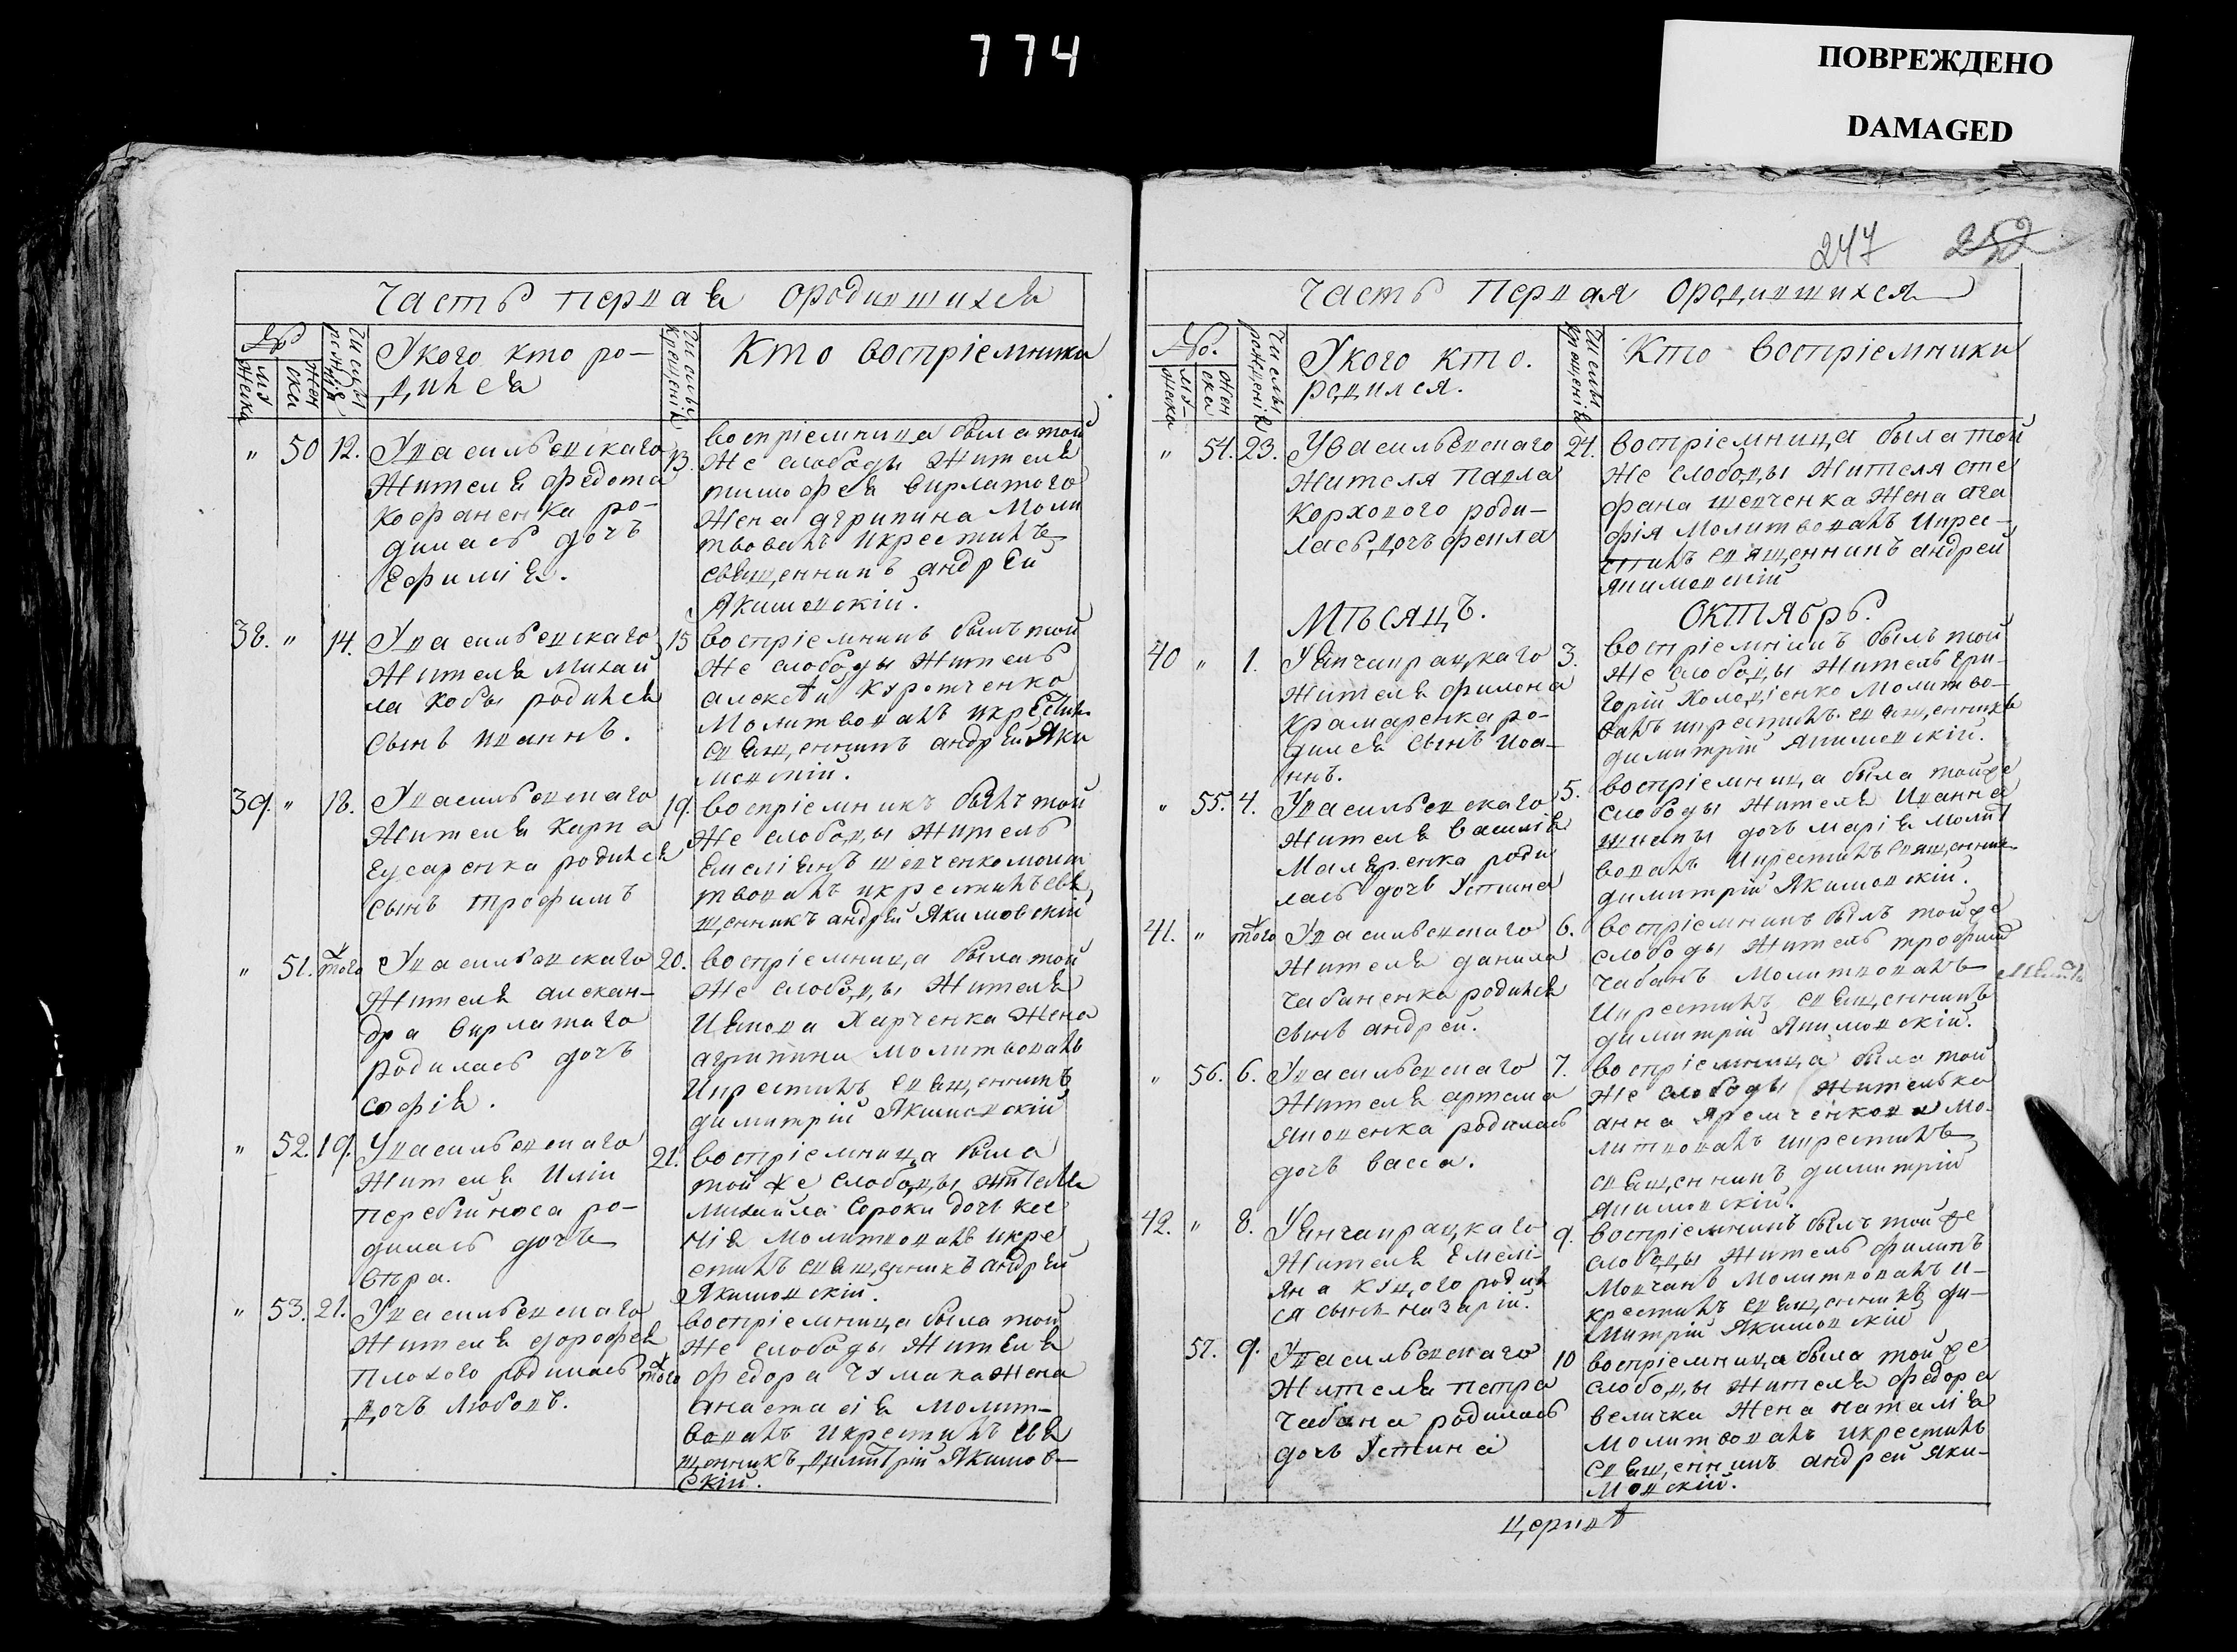 774
ПОВРЕЖДЕНО
DAMAGED
Часть первая ородившихся
№
муЖеска
Женска
Числа рожденія
Укого кто ро-
дился
Числы крещенія
Кто воспріемники
" 50 12. Увасильевскаго
Жителя федота
Кофаненка ро-
дилась дочь
Ефимія.
13. воспріемница была той
Же слободы Жителя
тимофея вирлатого
Жена агрипина Моли
твовалъ икрестилъ
священникъ андрей
Якимовскій.
38. " 14. Увасильевскаго
Жителя михай
ла кобы родился
сынъ иваннъ.
15 воспріемникъ былъ той
Же слободы Житель
алексѣй Куротченко
Молитвовалъ икрестил
священникъ андрей Яки
мовскій.
39. " 18. Увасильевскаго
Жителя карпа
гусаренка родился
сынъ трофимъ
19. воспріемникъ былъ той
Же слободы Житель
Емеліянъ шевченко молит
твовалъ икрестилъ свя
щенникъ андрей Якимовскій
" 51. того Увасильевскаго
Жителя алексан-
дра вирлатаго
родилась дочь
софія.
20. воспріемница была той
Же слободы Жителя
Іякова Харченка Жена
агрипина молитвовалъ
Икрестилъ священникъ
димитрій Якимовскій
" 52. 19. Увасильевскаго
Жителя Иліи
перебійноса ро-
дилась дочь
вѣра.
21. воспріемница была
той же слободы жителя
михайла Сороки дочь ксе
нія молитвовалъ икре
стилъ священникъ андрей
Якимовскій.
" 53. 21. Увасильевскаго
Жителя дорофея
плохого родилась
дочь любовь.
того воспріемница была той
Же слободы Жителя
федора чумака Жена
анастасія молит-
вовалъ икрестилъ свя
щенникъ димитрій Якимов-
скій.
247 252
Часть Первая ородившихся
№.
муЖеска
Женска
Числы рожденія
Укого кто.
родился.
Числы крещенія
Кто воспріемники
" 54. 23. Увасильевскаго
Жителя павла
Корхового роди-
лась дочь фекла
24. воспріемница была той
Же слободы Жителя сте
фана шевченка Жена ага
фія Молитвовалъ Икре-
стилъ священникъ андрей
якимовскій
Мѣсяцъ. ОКТЯБРЬ.
40 " 1. Уянчакрацкаго
Жителя филона
Крамаренка ро-
дился сынъ Іоа-
ннъ.
3. воспріемникъ былъ той
Же слободы Житель гри-
горій Холодіенко Молитво-
валъ икрестилъ священникъ
димитрій Якимовскій.
" 55. 4. Увасильевскаго
Жителя василія
Маляренка роди
лась дочь Устина
5. воспріемница была тойже
слободы Жителя Иванна
дочь марія молит
вовалъ Икрестилъ священник
димитрій Якимовскій.
41. " того Увасильевскаго
Жителя данила
чабаненка родился
сынъ андрей.
6. воспріемникъ былъ тойже
слободы Житель трофим
чабанъ молитвовалъ
Икрестилъ священникъ
димитрій Якимовскій.
" 56. 6. Увасильевскаго
Жителя артема
яковенка родилась
дочь васса.
7. воспріемница была той
Же слободы Жителька
анна яремченкова мо-
литвовалъ икрестилъ
священникъ димитрій
якимовскій.
42. " 8. Уянчакрацкаго
Жителя Емелі-
яна Кудого родил
ся сынъ назарій.
9. воспріемникъ былъ той же
слободы Житель филипъ
Мовчанъ молитвовалъ и-
крестилъ священникъ ди-
митрій Якимовскій
57. 9. Увасильевскаго
Жителя петра
чабана родилась
дочь Устина
10 воспріемница была той же
слободы Жителя федора
величка Жена наталія
молитвовалъ икрестилъ
священникъ андрей Яки-
мовскій.
церквѣ